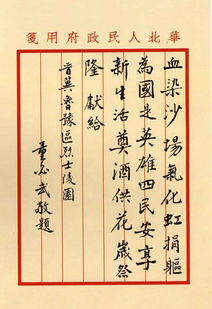 華北人民政府用箋
血染沙場氣化虹捐軀
為國是英雄四民安享
新生活奠酒供花歲祭
隆 獻給
晋冀魯豫區烈士陵園
董必武敬題